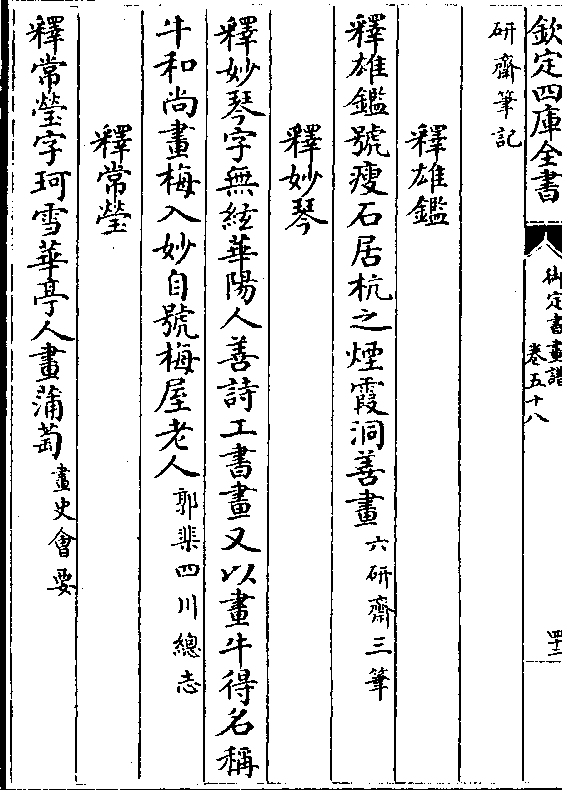 欽定四庫全書
御定書畫譜
卷五十八
四十二
研齋筆記
釋雄鑑
釋雄鑑號瘦石居杭之煙霞洞善畫六研齋三筆
釋妙琴
釋妙琴字無絃華陽人善詩工書畫又以畫牛得名稱
牛和尚畫梅入妙自號梅屋老人郭棐四川總志
釋常瑩
釋常瑩字珂雪華亭人畫蒲萄畫史會要